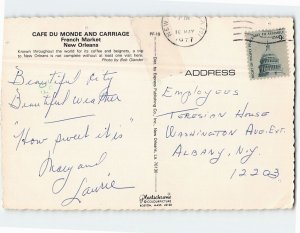 CAFE DU MONDE AND CARRIAGE
French Market
New Orleans
Known throughout the world for its coffee and beignets, a trip
to New Orleans is not complete without at least one visit here.
Photo by Bob Glander
Beautiful City
Beautiful weather
"How sweet it is"
Mary and
Laurie
10 MAY
1977
ADDRESS
Employees
Teresian House
Washington Ave. Ext.
Albany, N.Y.
12203
Plastichrome
BY COLOURPICTURE
BOSTON, MASS. 02130